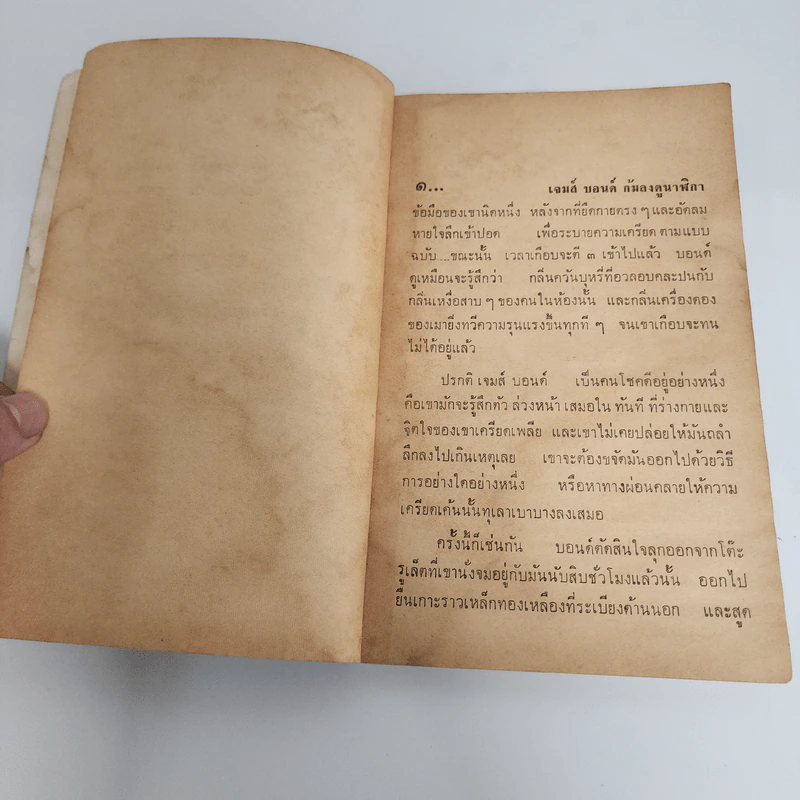 ๑... เจมส์ บอนด์ ก้มลงดูนาฬิกา
ข้อมือของเขานิดหนึ่ง หลังจากที่ยืดกายตรง ๆ และอัดลม
หายใจลึกเข้าปอด เพื่อระบายความเครียด ตามแบบ
ฉบับ...ขณะนั้น เวลาเกือบจะตี ๓ เข้าไปแล้ว บอนด์
ดูเหมือนจะรู้สึกว่า กลิ่นควันบุหรี่ที่อวลอบคละปนกับ
กลิ่นเหงื่อสาบ ๆ ของคนในห้องนั้น และกลิ่นเครื่องดอง
ของเมายิ่งทวีความรุนแรงขึ้นทุกที ๆ จนเขาเกือบจะทน
ไม่ได้อยู่แล้ว
ปรกติ เจมส์ บอนด์ เป็นคนโชคดีอยู่อย่างหนึ่ง
คือเขามักจะรู้สึกตัว ล่วงหน้า เสมอใน ทันที ที่ร่างกายและ
จิตใจของเขาเครียดเพลีย และเขาไม่เคยปล่อยให้มันถลำ
ลึกลงไปเกินเหตุเลย เขาจะต้องขจัดมันออกไปด้วยวิธี
การอย่างใดอย่างหนึ่ง หรือหาทางผ่อนคลายให้ความ
เครียดเค้นนั้นทุเลาเบาบางลงเสมอ
ครั้งนี้ก็เช่นกัน บอนด์ตัดสินใจลุกออกจากโต๊ะ
รูเล็ตที่เขานั่งจมอยู่กับมันนับสิบชั่วโมงแล้วนั้น ออกไป
ยืนเกาะราวเหล็กทองเหลืองที่ระเบียงด้านนอก และสูด